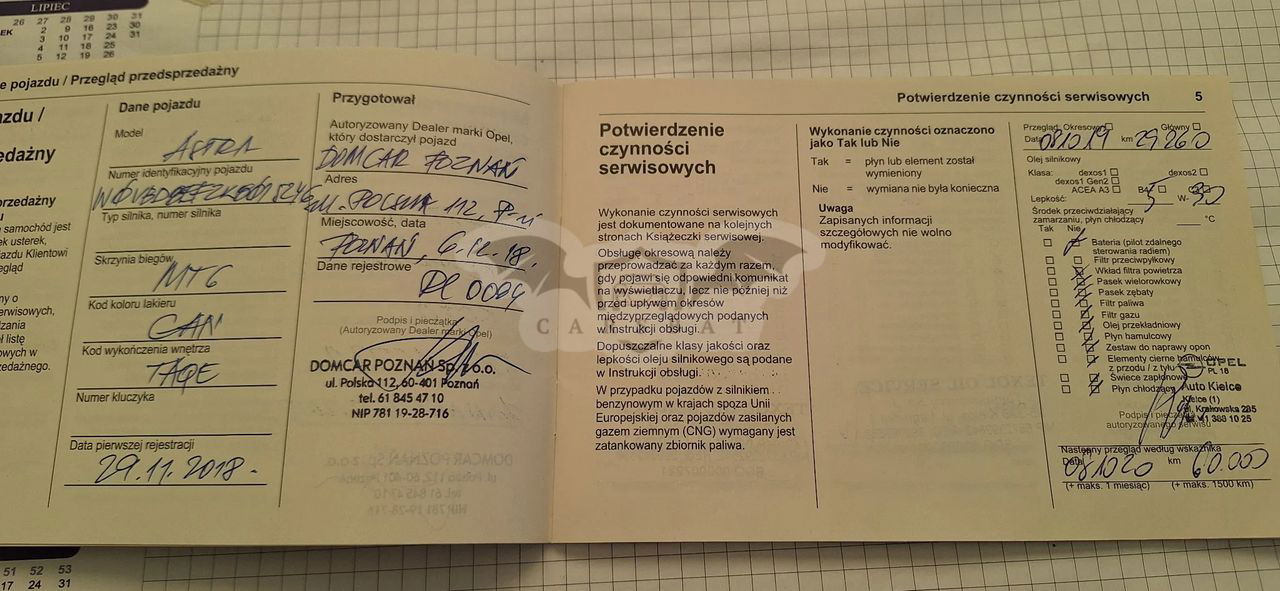 LIPIEC
26 27 28 29 30 31
EK 2 9 16 23 30
3 10 17 24 31
4 11 18 25
5 12 19 26
e pojazdu / Przegląd przedsprzedażny
azdu /
edażny
zedażny
u
samochód jest
ek usterek,
jazdu Klientowi
egląd
ny o
serwisowych,
zania
ł listę
owych w
zedażnego.
Dane pojazdu
Model
ASTRA
Numer identyfikacyjny pojazdu
Typ silnika, numer silnika
Skrzynia biegów
MT6
Kod koloru lakieru
GAN
Kod wykończenia wnętrza
TAQE
Numer kluczyka
Data pierwszej rejestracji
29.11.2018.
Przygotował
Autoryzowany Dealer marki Opel,
który dostarczył pojazd
DOMCAR POZNAŃ
Adres
UL. POLSKA 112, P-ń
Miejscowość, data
POZNAŃ, 6.12.18.
Dane rejestrowe
PL 0094
Podpis i pieczątka
(Autoryzowany Dealer marki Opel)
DOMCAR POZNAŃ Sp. z o.o.
ul. Polska 112, 60-401 Poznań
tel. 61 845 47 10
NIP 781 19-28-716
Potwierdzenie czynności serwisowych 5
Potwierdzenie
czynności
serwisowych
Wykonanie czynności serwisowych
jest dokumentowane na kolejnych
stronach Książeczki serwisowej.
Obsługę okresową należy
przeprowadzać za każdym razem,
gdy pojawi się odpowiedni komunikat
na wyświetlaczu, lecz nie później niż
przed upływem okresów
międzyprzeglądowych podanych
w Instrukcji obsługi.
Dopuszczalne klasy jakości oraz
lepkości oleju silnikowego są podane
w Instrukcji obsługi.
W przypadku pojazdów z silnikiem
benzynowym w krajach spoza Unii
Europejskiej oraz pojazdów zasilanych
gazem ziemnym (CNG) wymagany jest
zatankowany zbiornik paliwa.
Wykonanie czynności oznaczono
jako Tak lub Nie
Tak = płyn lub element został
wymieniony
Nie = wymiana nie była konieczna
Uwaga
Zapisanych informacji
szczegółowych nie wolno
modyfikować.
Przegląd: Okresowy Główny
Data 081019 km 29260
Olej silnikowy
Klasa: dexos1 dexos2
dexos1 Gen2
ACEA A3 B4 C3
Lepkość: 5 W- 30
Środek przeciwdziałający
zamarzaniu, płyn chłodzący °C
Tak Nie
Bateria (pilot zdalnego
sterowania radiem)
Filtr przeciwpyłkowy
Wkład filtra powietrza
Pasek wielorowkowy
Pasek zębaty
Filtr paliwa
Filtr gazu
Olej przekładniowy
Płyn hamulcowy
Zestaw do naprawy opon
Elementy cierne hamulców
z przodu / z tyłu
Świece zapłonowe
Płyn chłodzący
OPEL
PL 18
Auto Kielce
Kielce (1)
ul. Krakowska 285
41 366 10 25
Podpis i pieczątka
autoryzowanego serwisu
Następny przegląd według wskaźnika
Data 081020 km 60.000
(+ maks. 1 miesiąc) (+ maks. 1500 km)
51 52 53
17 24 31